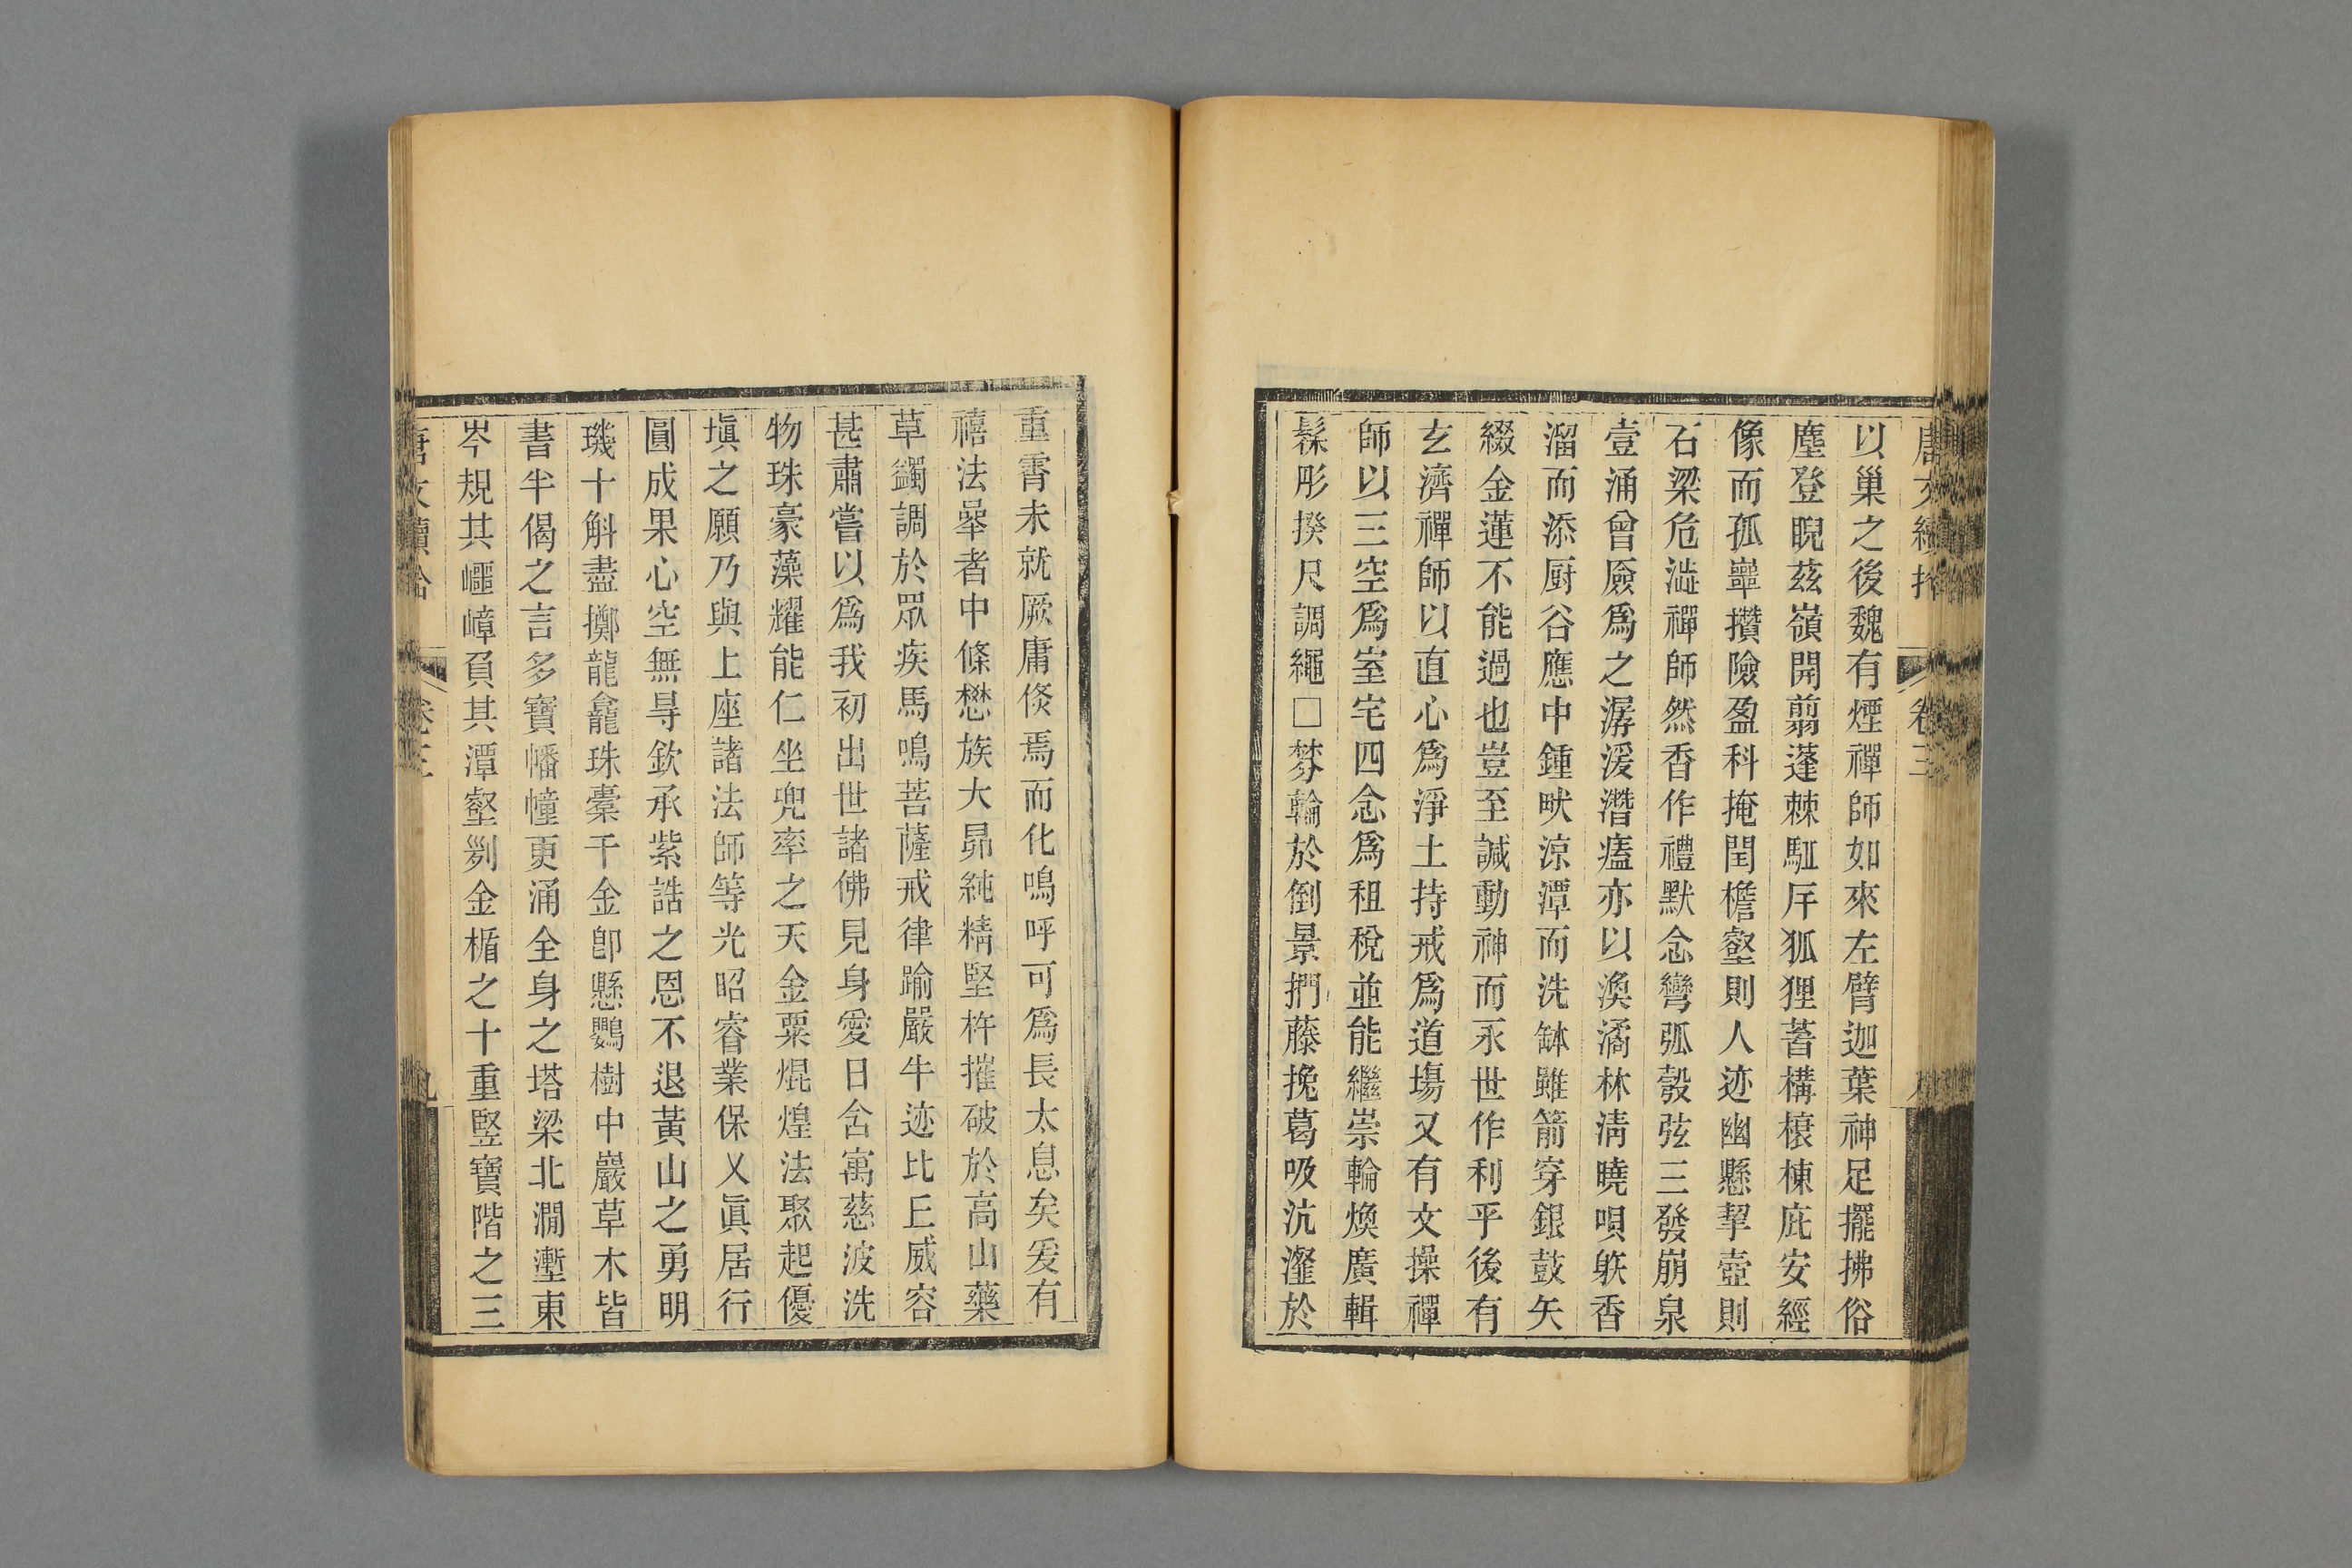 以巢之後魏有煙禪師如來左臂迦葉神足擺拂俗
塵登睨茲嶺開翦蓬棘駈斥狐狸蓍構榱棟庇安經
像而孤巘攢險盈科掩閏檐壑則人迹幽懸挈壺則
石梁危澁禪師然香作禮默念彎弧彀弦三發崩泉
壹涌曾厱爲之潺湲潛瘗亦以渙潏林淸曉唄躼香
溜而添厨谷應中鍾畎涼潭而洗缽雖箭穿銀鼓矢
綴金蓮不能過也豈至諴動神而永世作利乎後有
玄濟禪師以直心爲淨土持戒爲道場又有文操禪
師以三空爲室宅四念爲租稅並能繼崇輪煥廣輯
髹彤揆尺調繩□棼輪於倒景捫藤挽葛吸沆瀣於
重霄未就厥庸倐焉而化鳴呼可爲長太息矣爰有
禧法辠者中條懋族大昴純精堅杵摧破於高山藥
草蠲調於眾疾馬鳴菩薩戒律踰嚴牛迹比丘威容
甚肅嘗以爲我初出世諸佛見身愛日舍寓慈波洗
物珠豪藻耀能仁坐兜率之天金粟焜煌法聚起優
塡之願乃與上座諸法師等光昭睿業保乂眞居行
圓成果心空無㝵欽承紫誥之恩不退黃山之勇明
璣十斛盡擲龍龕珠橐千金卽懸鸚樹中巖草木皆
書半偈之言多寶幡幢更涌全身之塔梁北澗塹東
岑規其㠋嶂負其潭壑剡金楯之十重竪寶階之三
唐文續拾
卷三